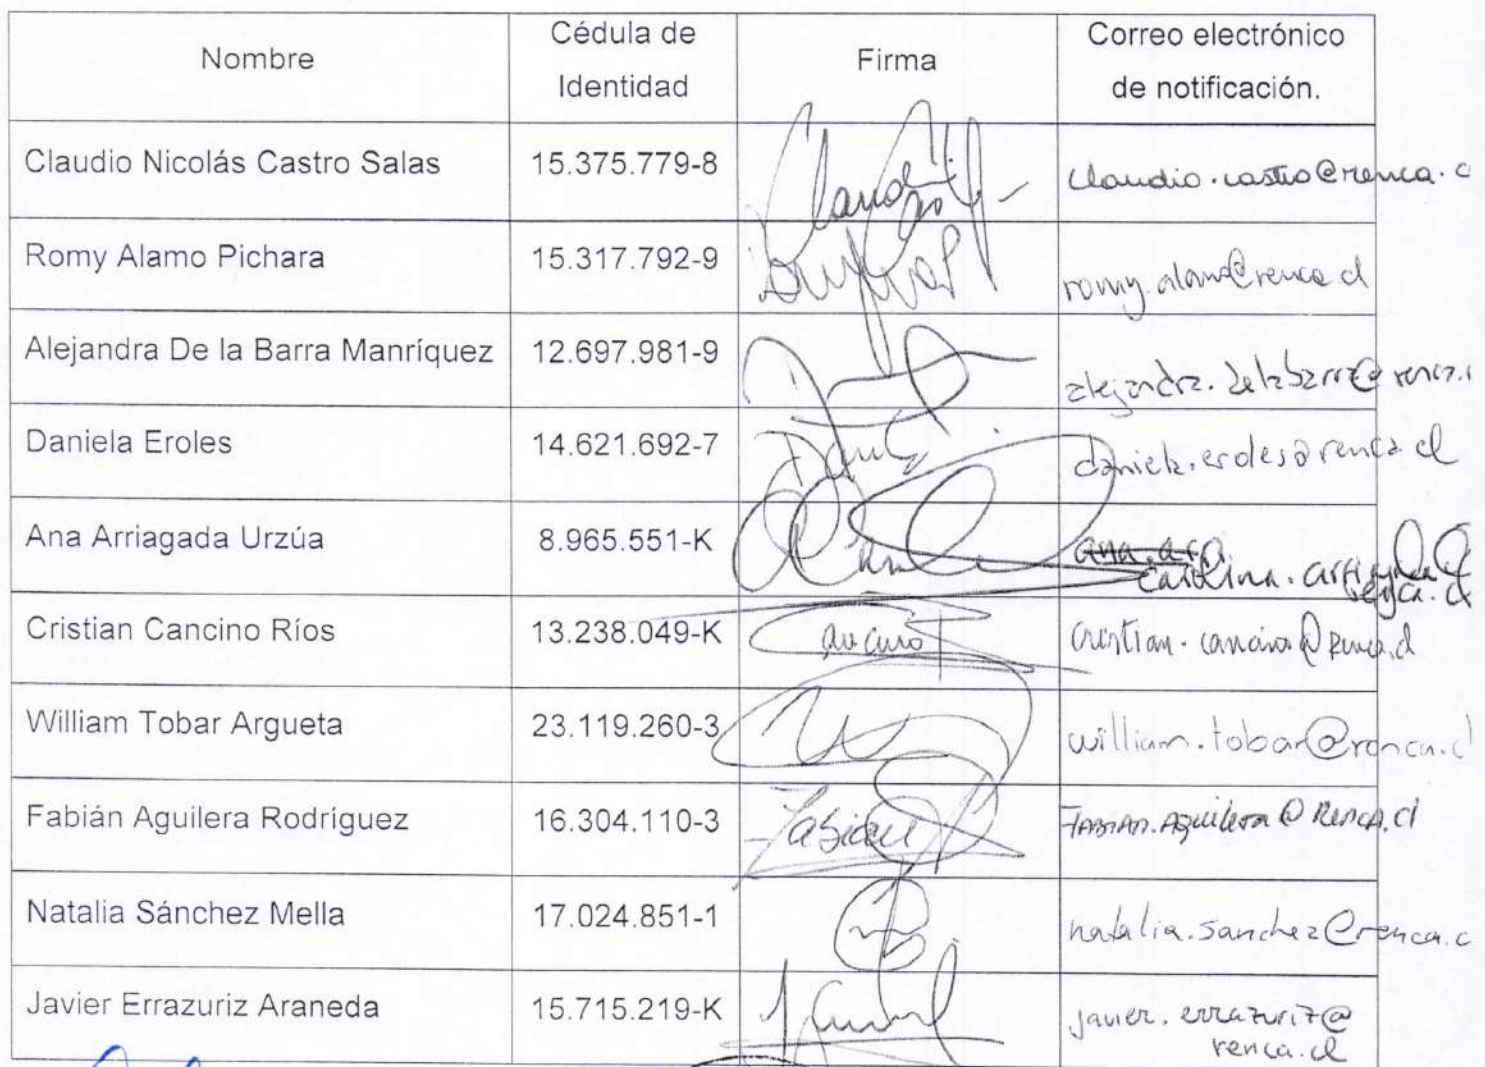 Nombre
Cédula de
Identidad
Firma
Correo electrónico
de notificación.
Claudio Nicolás Castro Salas 15.375.779-8 claudio.castro@renca.c
Romy Alamo Pichara 15.317.792-9 romy.alamo@renca.cl
Alejandra De la Barra Manríquez 12.697.981-9 alejandra.delabarra@renca.c
Daniela Eroles 14.621.692-7 daniela.eroles@renca.cl
Ana Arriagada Urzúa 8.965.551-K carolina.arriagada@
renca.cl
Cristian Cancino Ríos 13.238.049-K Cancino cristian.cancino@renca.cl
William Tobar Argueta 23.119.260-3 william.tobar@renca.cl
Fabián Aguilera Rodríguez 16.304.110-3 Fabian FABIAN.Aguilera@Renca.cl
Natalia Sánchez Mella 17.024.851-1 natalia.sanchez@renca.c
Javier Errazuriz Araneda 15.715.219-K javier.errazuriz@
renca.cl